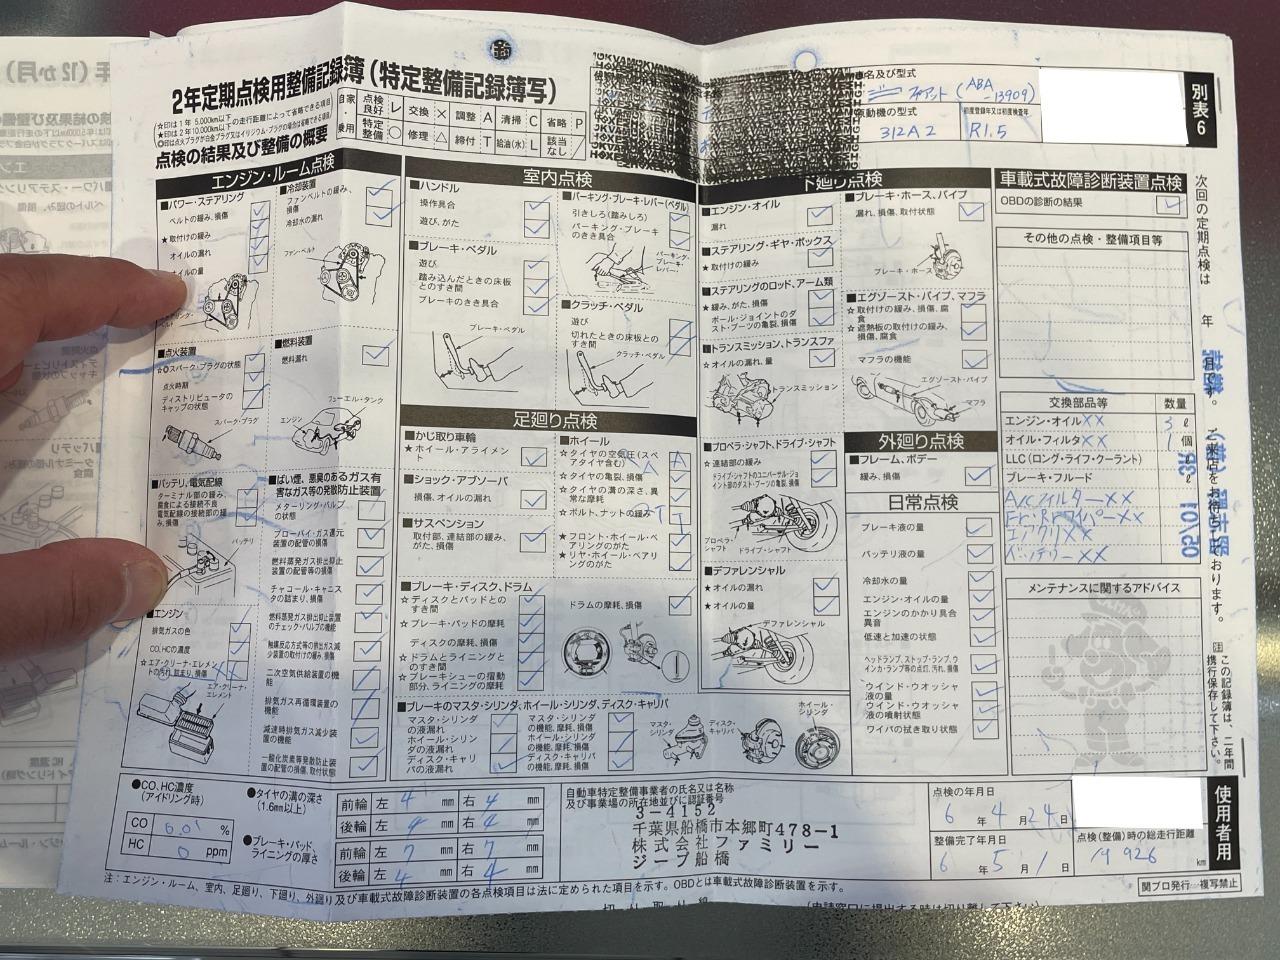 2年定期点検用整備記録簿(特定整備記録簿写)
☆印は1年 5,000km以下の走行距離によって省略できる項目
★印は2年10,000km以下の走行距離によって省略できる項目
点検の結果及び整備の概要
自家・乗用
点検良好 レ 交換 × 調整 A 清掃 C 省略 P
特定整備 ○ 修理 △ 締付 T 給油(水) L 該当なし /
車名及び型式
(ABA-13909)
原動機の型式
312A2
初度登録年又は初度検査年
R1.5
別表6
エンジン・ルーム点検
■パワー・ステアリング
ベルトの緩み、損傷
★取付けの緩み
オイルの漏れ
オイルの量
■冷却装置
ファンベルトの緩み、損傷
冷却水の漏れ
ファン・ベルト
■点火装置
☆✪スパーク・プラグの状態
点火時期
ディストリビュータのキャップの状態
スパーク・プラグ
■燃料装置
燃料漏れ
フューエル・タンク
エンジン
■バッテリ、電気配線
ターミナル部の緩み、腐食による接続不良
電気配線の接続部の緩み、損傷
バッテリ
■ばい煙、悪臭のあるガス有害なガス等の発散防止装置
メターリング・バルブの状態
ブローバイ・ガス還元装置の配管の損傷
燃料蒸発ガス排出抑止装置の配管等の損傷
チャコール・キャニスタの詰まり、損傷
燃料蒸発ガス排出抑止装置のチェック・バルブの機能
触媒反応方式等の排出ガス減少装置の取付けの緩み、損傷
二次空気供給装置の機能
排気ガス再循環装置の機能
減速時排気ガス減少装置の機能
一酸化炭素等発散防止装置の配管の損傷、取付状態
■エンジン
排気ガスの色
CO,HCの濃度
☆エア・クリーナ・エレメントの汚れ、詰まり、損傷
エア・クリーナ・エレメント
室内点検
■ハンドル
操作具合
遊び、がた
■ブレーキ・ペダル
遊び
踏み込んだときの床板とのすき間
ブレーキのきき具合
ブレーキ・ペダル
■パーキング・ブレーキ・レバー(ペダル)
引きしろ(踏みしろ)
パーキング・ブレーキのきき具合
パーキング・ブレーキ・レバー
■クラッチ・ペダル
遊び
切れたときの床板とのすき間
クラッチ・ペダル
足廻り点検
■かじ取り車輪
★ホイール・アライメント
■ショック・アブソーバ
損傷、オイルの漏れ
■サスペンション
取付部、連結部の緩み、がた、損傷
■ホイール
☆タイヤの空気圧(スペアタイヤ含む) A
☆タイヤの亀裂、損傷
☆タイヤの溝の深さ、異常な摩耗
☆ボルト、ナットの緩み T
★フロント・ホイール・ベアリングのがた
★リヤ・ホイール・ベアリングのがた
■ブレーキ・ディスク、ドラム
☆ディスクとパッドとのすき間
☆ブレーキ・パッドの摩耗
ディスクの摩耗、損傷
☆ドラムとライニングとのすき間
☆ブレーキシューの摺動部分、ライニングの摩耗
ドラムの摩耗、損傷
■ブレーキのマスタ・シリンダ、ホイール・シリンダ、ディスク・キャリパ
マスタ・シリンダの液漏れ
ホイール・シリンダの液漏れ
ディスク・キャリパの液漏れ
マスタ・シリンダの機能、摩耗、損傷
ホイール・シリンダの機能、摩耗、損傷
ディスク・キャリパの機能、摩耗、損傷
マスタ・シリンダ
ディスク・キャリパ
ホイール・シリンダ
下廻り点検
■エンジン・オイル
漏れ
■ステアリング・ギヤ・ボックス
★取付けの緩み
■ステアリングのロッド、アーム類
★緩み、がた、損傷
ボール・ジョイントのダスト・ブーツの亀裂、損傷
■トランスミッション、トランスファ
☆オイルの漏れ、量
トランスミッション
■プロペラ・シャフト、ドライブ・シャフト
☆連結部の緩み
ドライブ・シャフトのユニバーサル・ジョイント部のダスト・ブーツの亀裂、損傷
プロペラ・シャフト
ドライブ・シャフト
■デファレンシャル
★オイルの漏れ
★オイルの量
デファレンシャル
■ブレーキ・ホース、パイプ
漏れ、損傷、取付状態
ブレーキ・ホース
■エグゾースト・パイプ、マフラ
☆取付けの緩み、損傷、腐食
☆遮熱板の取付けの緩み、損傷、腐食
マフラの機能
エグゾースト・パイプ
マフラ
外廻り点検
■フレーム、ボデー
緩み、損傷
日常点検
ブレーキ液の量
バッテリ液の量
冷却水の量
エンジン・オイルの量
エンジンのかかり具合異音
低速と加速の状態
ヘッドランプ、ストップ・ランプ、ウインカ・ランプ等の点灯、汚れ、損傷
ウインド・ウオッシャ液の量
ウインド・ウオッシャ液の噴射状態
ワイパの拭き取り状態
車載式故障診断装置点検
OBDの診断の結果
その他の点検・整備項目等
交換部品等 数量
エンジン・オイル×× 3 ℓ
オイル・フィルタ×× 1 個
LLC(ロング・ライフ・クーラント) ℓ
ブレーキ・フルード ℓ
A/Cフィルター××
Fr.Rrワイパー××
エアクリ××
バッテリー××
メンテナンスに関するアドバイス
次回の定期点検は 年 月です。ご来店をお待ちしております。
注 この記録簿は、二年間携行保存して下さい。
使用者用
●CO、HC濃度(アイドリング時)
CO 0.01 %
HC 0 ppm
●タイヤの溝の深さ(1.6mm以上)
前輪 左 4 mm 右 4 mm
後輪 左 4 mm 右 4 mm
●ブレーキ・パッド、ライニングの厚さ
前輪 左 7 mm 右 7 mm
後輪 左 7 mm 右 7 mm
自動車特定整備事業者の氏名又は名称及び事業場の所在地並びに認証番号
3-4152
千葉県船橋市本郷町478-1
株式会社ファミリー
ジープ船橋
点検の年月日
6年 4月 24日
整備完了年月日
6年 5月 1日
点検(整備)時の総走行距離
19926 km
注:エンジン・ルーム、室内、足廻り、下廻り、外廻り及び車載式故障診断装置の各点検項目は法に定められた項目を示す。OBDとは車載式故障診断装置を示す。
関ブロ発行 複写禁止